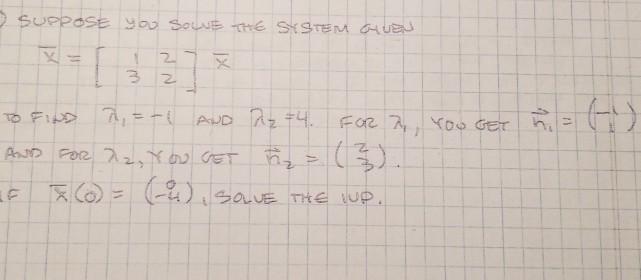 ) SUPPOSE YOU SOLVE THE SYSTEM GIVEN
x̄ = [ 1 2
3 2 ] x̄
TO FIND λ₁ = -1 AND λ₂ = 4. FOR λ₁, YOU GET n⃗₁ = (-1
1)
AND FOR λ₂, YOU GET n⃗₂ = (2
3).
IF x̄(0) = (0
-4), SOLVE THE IVP.